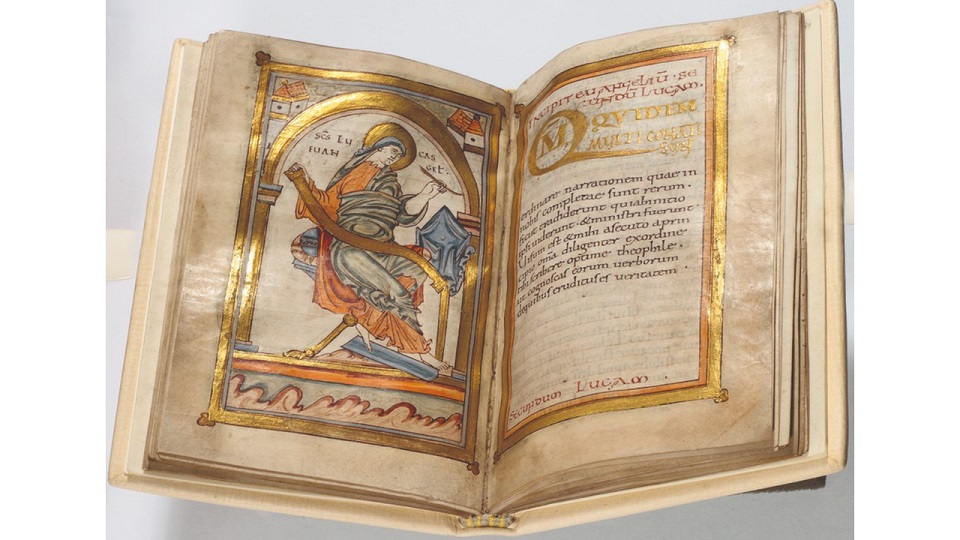 SC̄S LU CAS
EUAN GEL:
INCIPIT EUANGELIŪ · SE
CUNDŪ LUCAM ·
QM̄ QUIDEM
MULTI CONATI
SUNT
ordinare narrationem quae in
nobis completae sunt rerum ·
sicut tradiderunt qui abinitio
ipsi uiderunt · & ministri fuerunt ·
Uisum est & mihi asecuto aprin
cipio om̄a diligenter exordine
tibi scribere optime theophile ·
ut cognoscas eorum uerborum
dequibus eruditus es ueritatem
SECUNDUM LUCAM